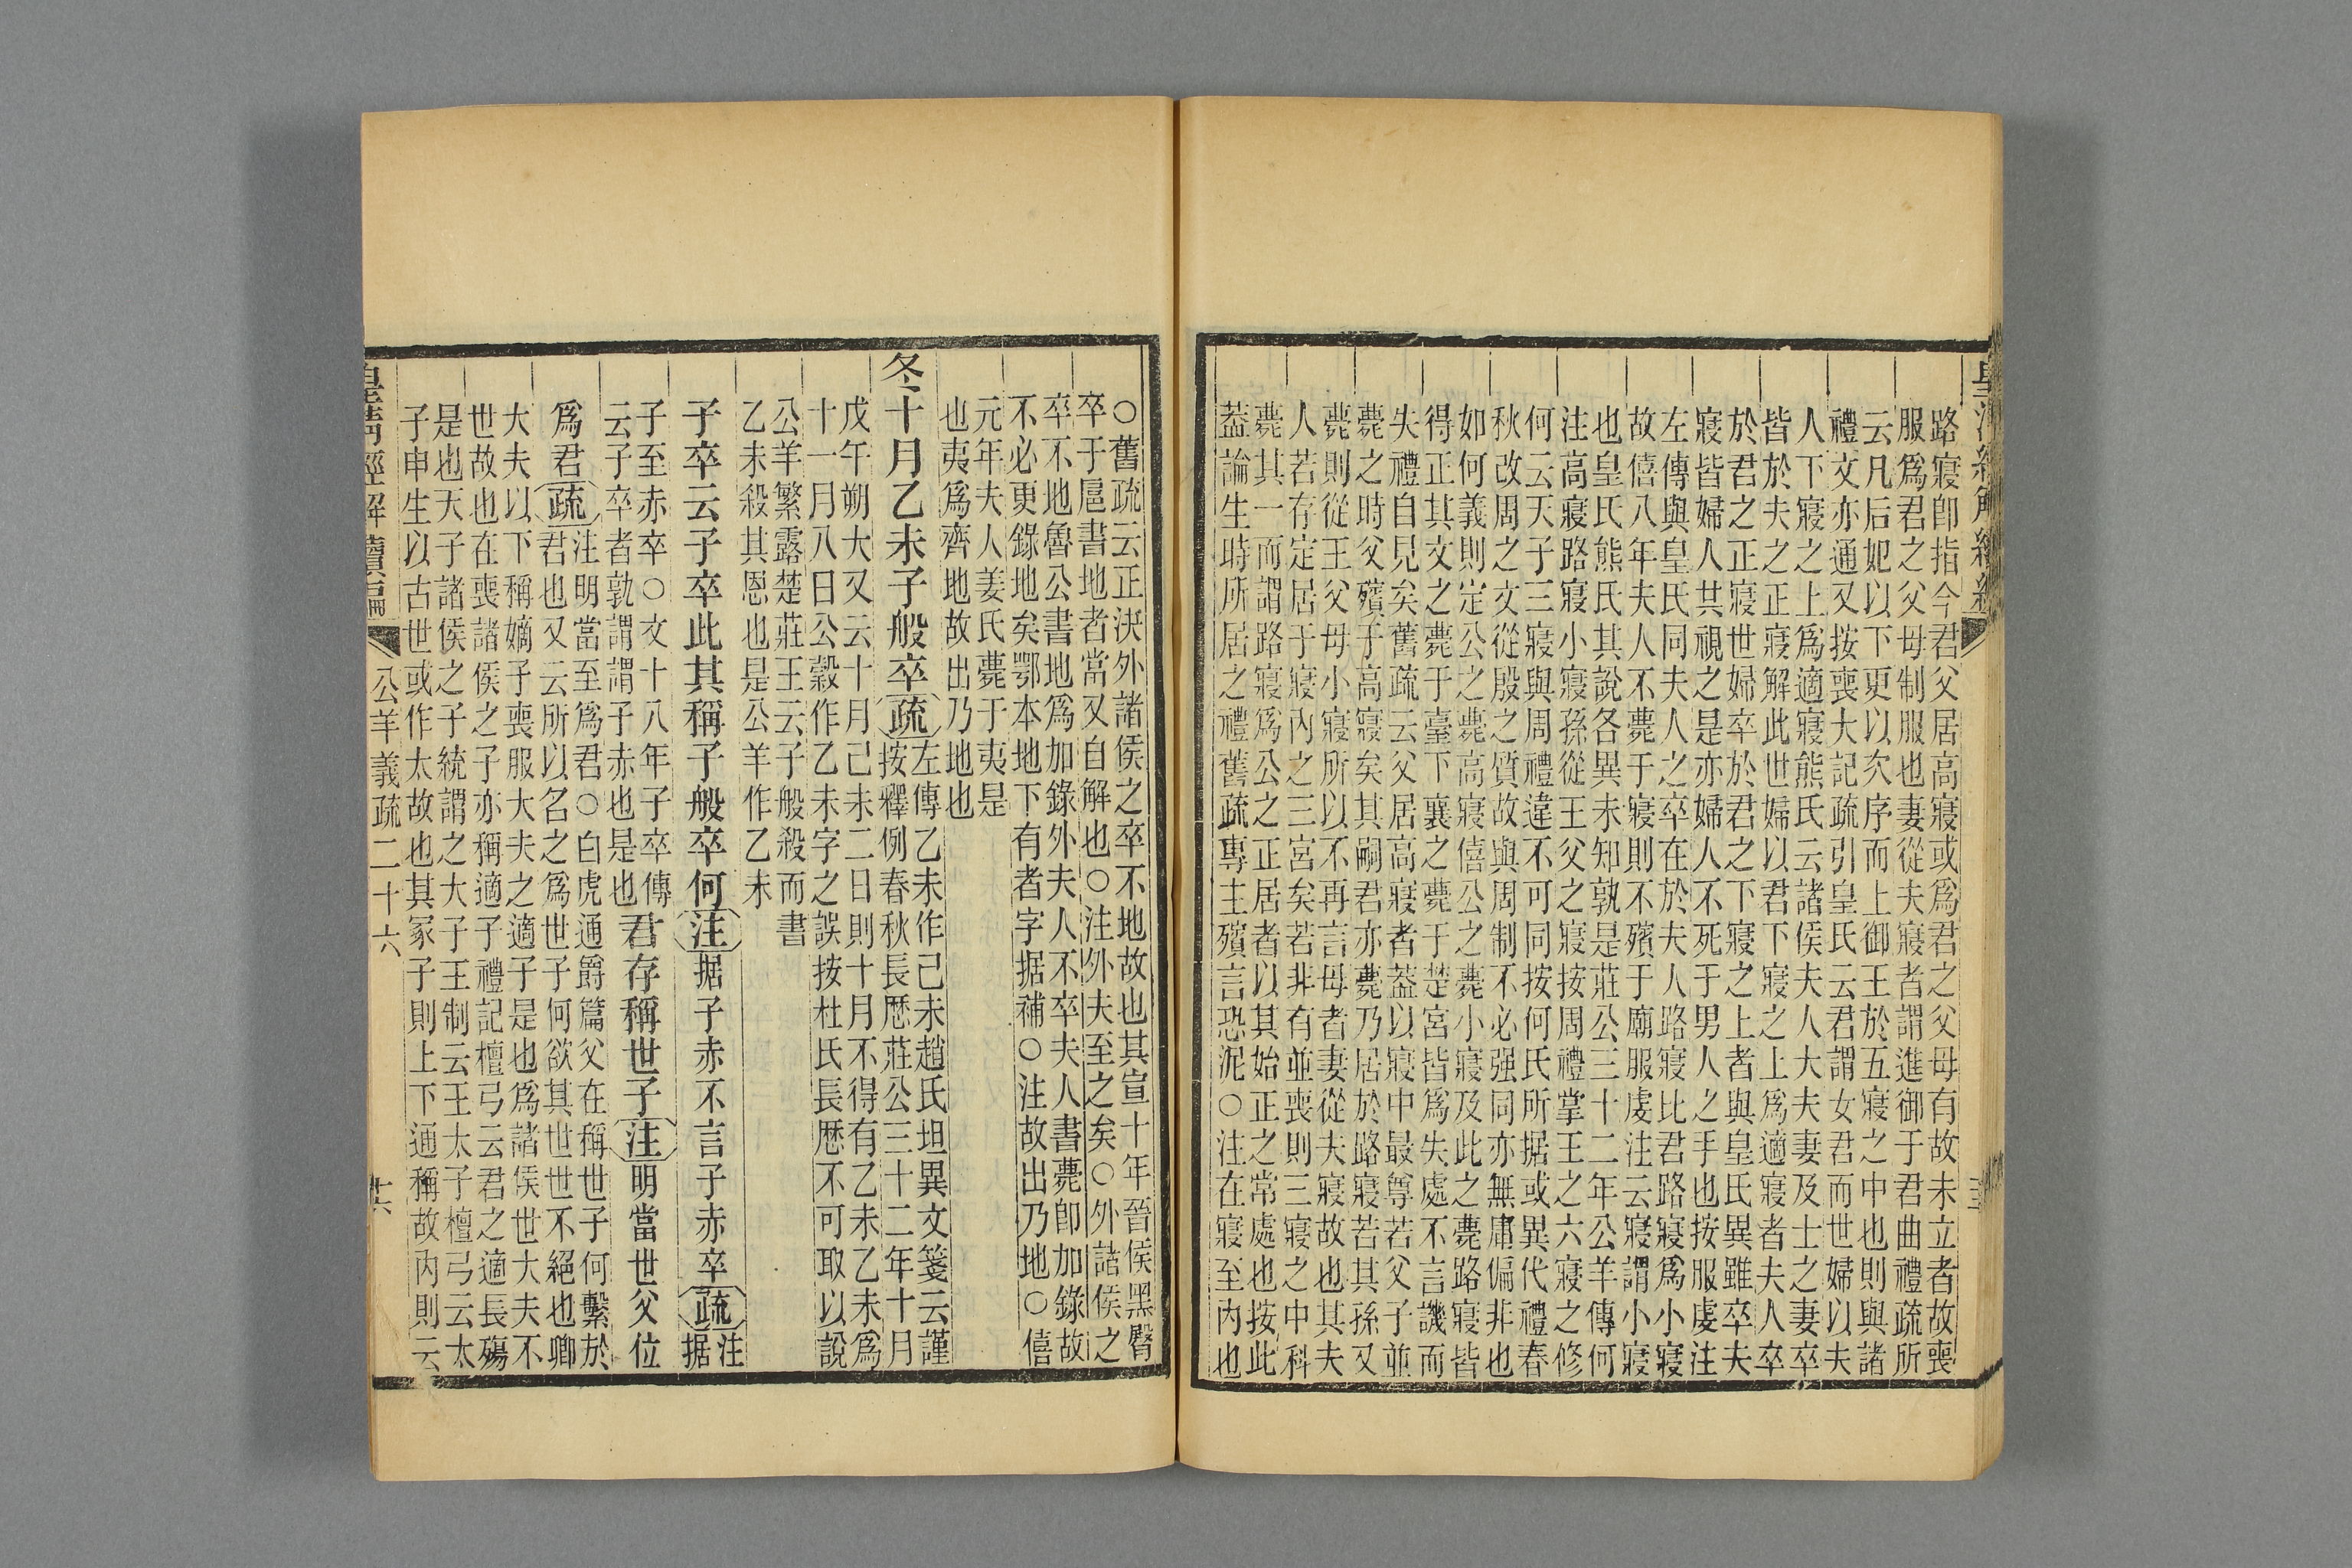 路寢卽指今君父居高寢或爲君之父母有故未立者故喪
服爲君之父母制服也妻從夫寢者謂進御于君曲禮疏所
云凡后妃以下更以次序而上御王於五寢之中也則與諸
禮文亦通又按喪大記疏引皇氏云君謂女君而世婦以夫
人下寢之上爲適寢熊氏云諸侯夫人大夫妻及士之妻卒
皆於夫之正寢解此世婦以君下寢之上爲適寢者夫人卒
於君之正寢世婦卒於君之下寢之上者與皇氏異雖卒夫
寢皆婦人其視之是亦婦人不死于男人之手也按服虔注
左傳與皇氏同夫人之卒在於夫人路寢比君路寢爲小寢
故僖八年夫人不薨于寢則不殯于廟服虔注云寢謂小寢
也皇氏熊氏其說各異未知孰是莊公三十二年公羊傳何
注高寢路寢小寢孫從王父之寢按周禮掌王之六寢之修
何云天子三寢與周禮違不可同按何氏所据或異代禮春
秋改周之文從殷之質故與周制不必强同亦無庸偏非也
如何義則定公之薨高寢僖公之薨小寢及此之薨路寢皆
得正其文之薨于臺下襄之薨于楚宮皆爲失處不言譏而
失禮自見矣舊疏云父居高寢者葢以寢中最尊若父子並
薨之時父殯于高寢矣其嗣君亦薨乃居於路寢若其孫又
薨則從王父母小寢所以不再言母者妻從夫寢故也其夫
人若存定居于寢內之三宮矣若非有並喪則三寢之中科
薨其一而謂路寢爲公之正居者以其始正之常處也按此
葢論生時所居之禮舊疏專主殯言恐泥○注在寢至內也
○舊疏云正決外諸侯之卒不地故也其宣十年晉侯黑臀
卒于扈書地者當又自解也○注外夫至之矣○外諸侯之
卒不地魯公書地爲加錄外夫人不卒夫人書薨卽加錄故
不必更錄地矣鄂本地下有者字据補○注故出乃地○僖
元年夫人姜氏薨于夷是
也夷爲齊地故出乃地也
冬十月乙未子般卒疏左傳乙未作己未趙氏坦異文箋云謹
按釋例春秋長歷莊公三十二年十月
戊午朔大又云十月己未二日則十月不得有乙未乙未爲
十一月八日公穀作乙未字之誤按杜氏長歷不可取以說
公羊繁露楚莊王云子般殺而書
乙未殺其恩也是公羊作乙未
子卒云子卒此其稱子般卒何注据子赤不言子赤卒疏注
据
子至赤卒○文十八年子卒傳
云子卒者孰謂謂子赤也是也君存稱世子注明當世父位
爲君疏注明當至爲君○白虎通爵篇父在稱世子何繫於
君也又云所以名之爲世子何欲其世世不絕也卿
大夫以下稱嫡子喪服大夫之適子是也爲諸侯世大夫不
世故也在喪諸侯之子亦稱適子禮記檀弓云君之適長殤
是也天子諸侯之子統謂之大子王制云王太子檀弓云太
子申生以古世或作太故也其冢子則上下通稱故內則云
公羊義疏二十六